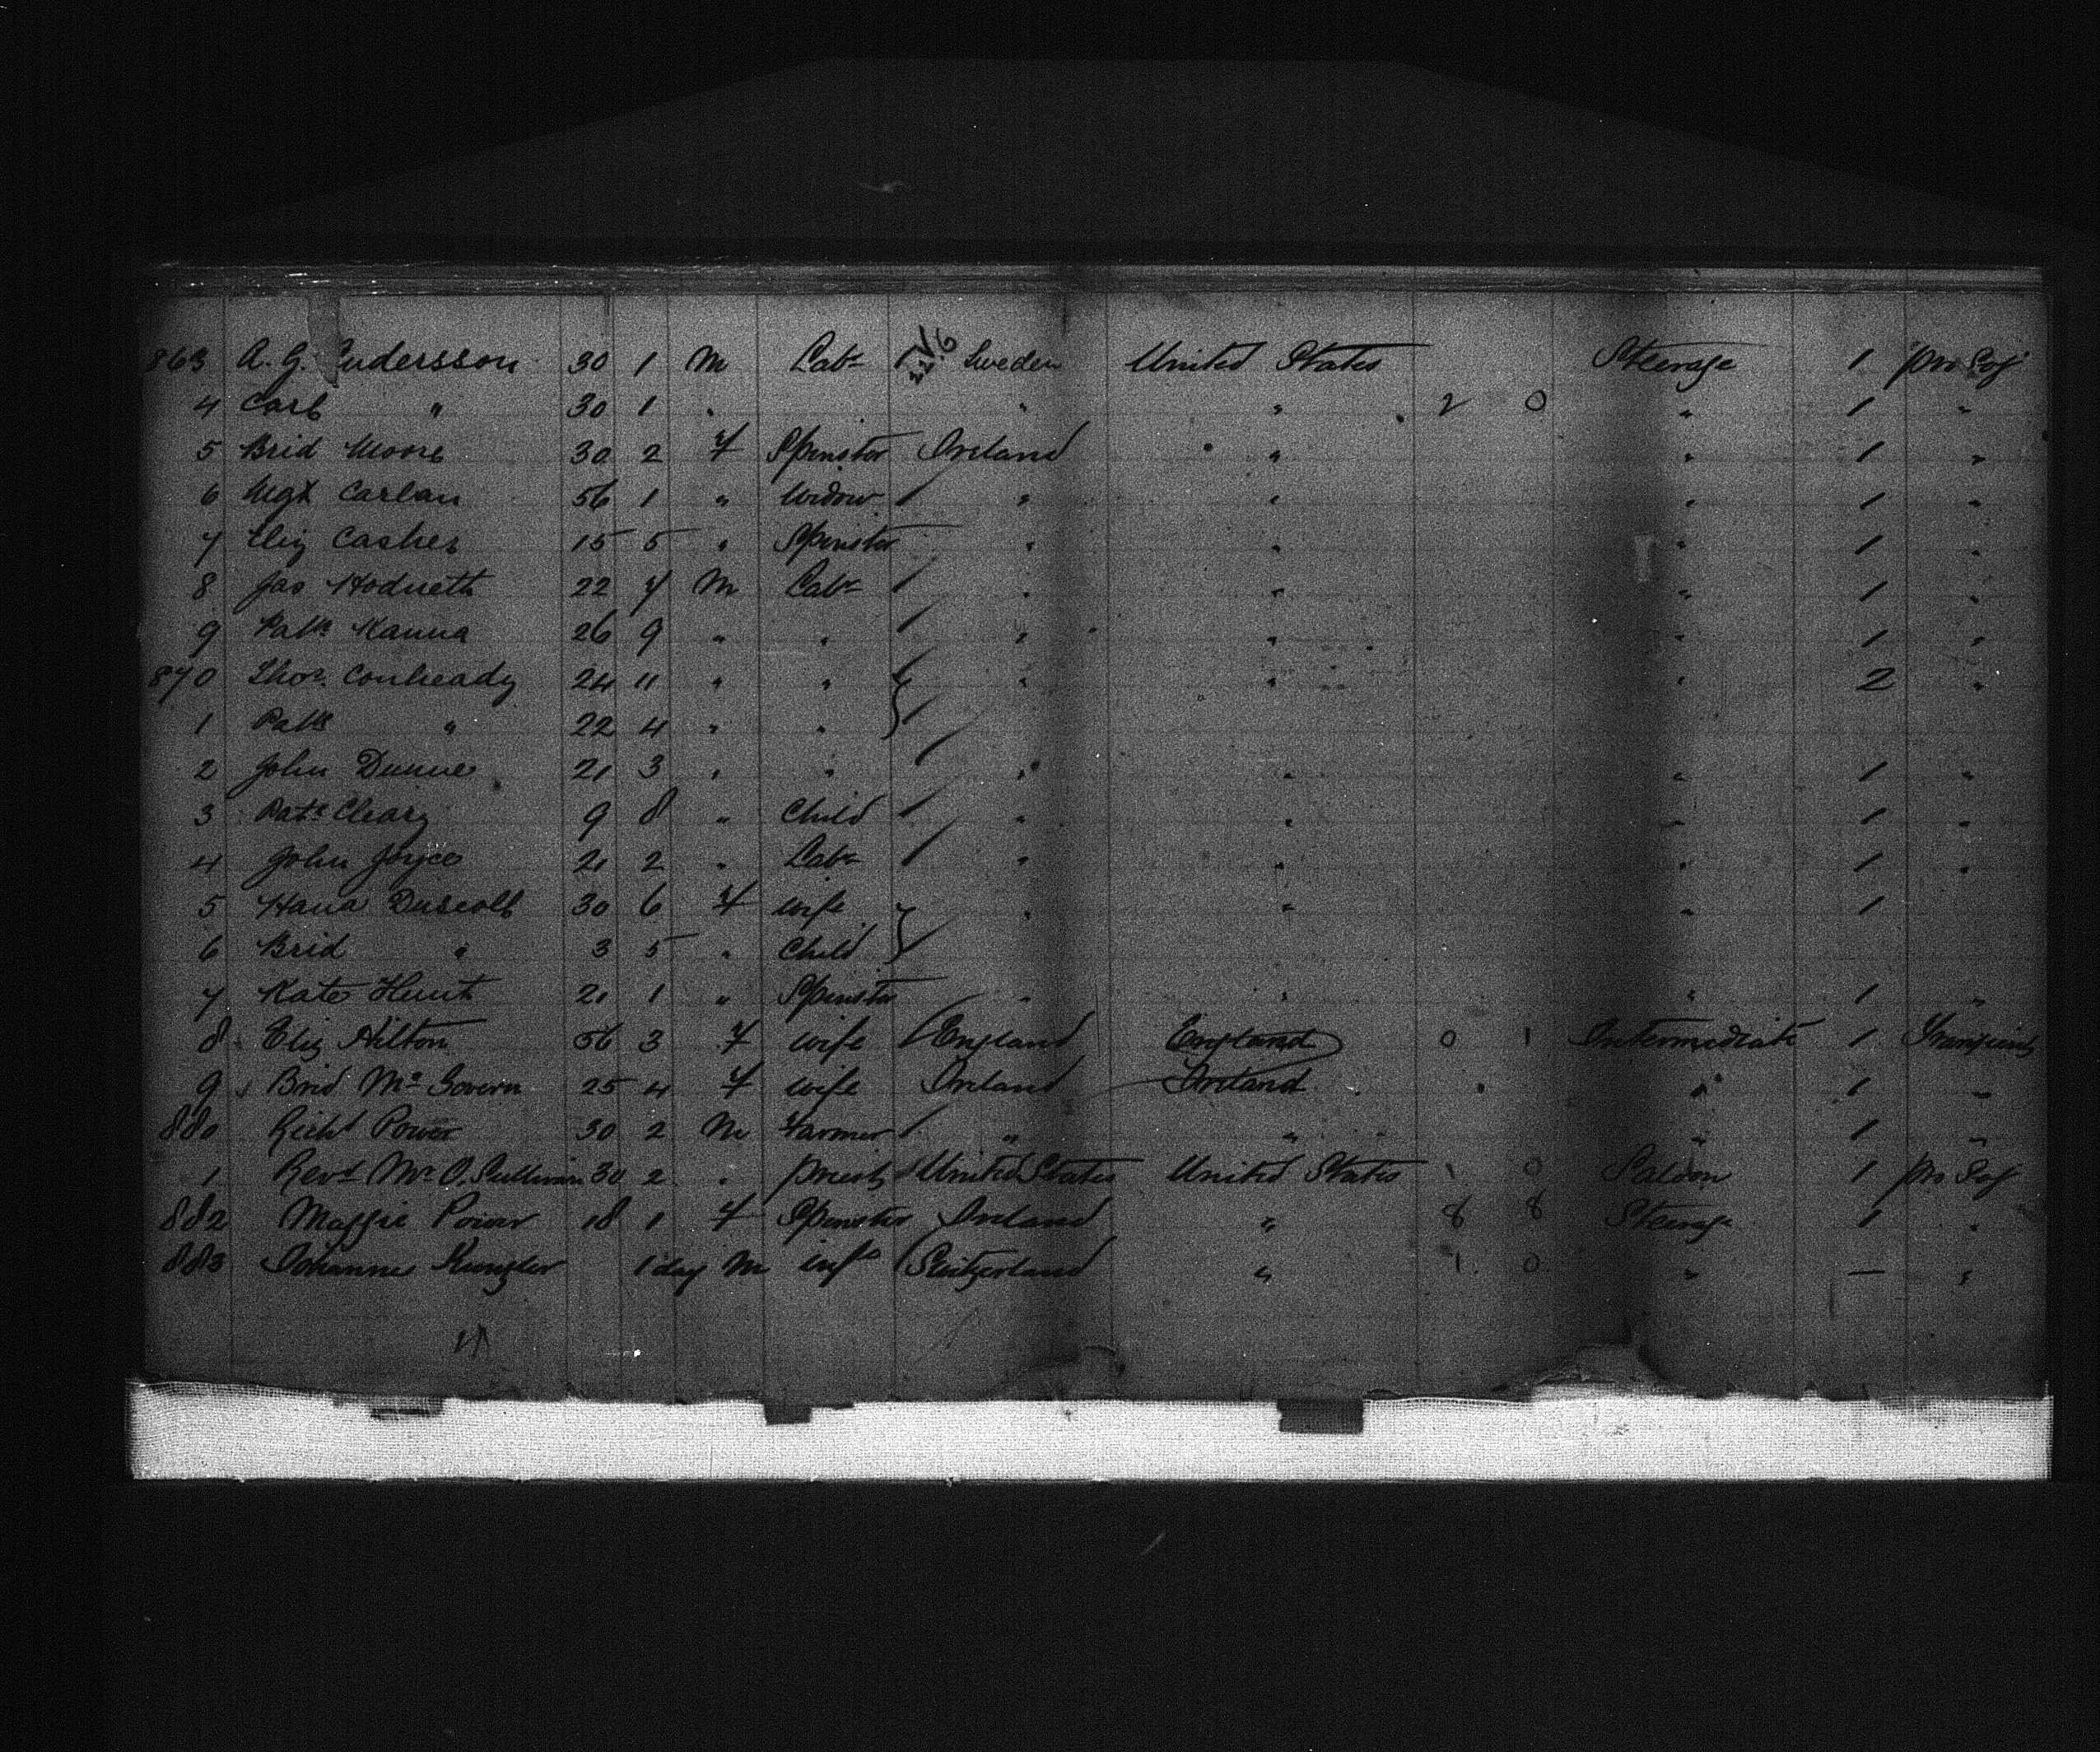 863 A. G. Andersson 30 1 M Labr Sweden United States Steerage 1 pro Soj
4 Carl " 30 1 " " " 2 0 " 1 "
5 Brid Moore 30 2 F Spinster Ireland " " 1 "
6 Mgt Carlan 56 1 " Widow " " " 1 "
7 Eliz Casher 15 5 " Spinster " " " 1 "
8 Jas Hodnett 22 7 M Labr " " " 1 "
9 Patk Kanna 26 9 " " " " " 1 "
870 Thos. Conheady 24 11 " " " " " 2 "
1 Patk " 22 4 " "
2 John Dunne 21 3 " " " " " 1 "
3 Patk Cleary 9 8 " Child " " " 1 "
4 John Joyce 21 2 " Labr " " " 1 "
5 Hana Driscoll 30 6 F wife " " " 1
6 Brid " 3 5 " Child
7 Kate Hunt 21 1 " Spinster " " " 1 "
8 Eliz Hilton 56 3 F wife England England 0 1 Intermediate 1 Transient
9 Brid Mc Govern 25 4 F wife Ireland Ireland " 1 "
880 Richd Power 30 2 M Farmer " " " 1 "
1 Revd Mr O. Sullivan 30 2 " priest United States United States 1 0 Saloon 1 pro Soj
882 Maggie Power 18 1 F Spinster Ireland " 8 8 Steerage 1 "
883 Johannes Kunzler 1 day M inft Switzerland " 1 0 " — "